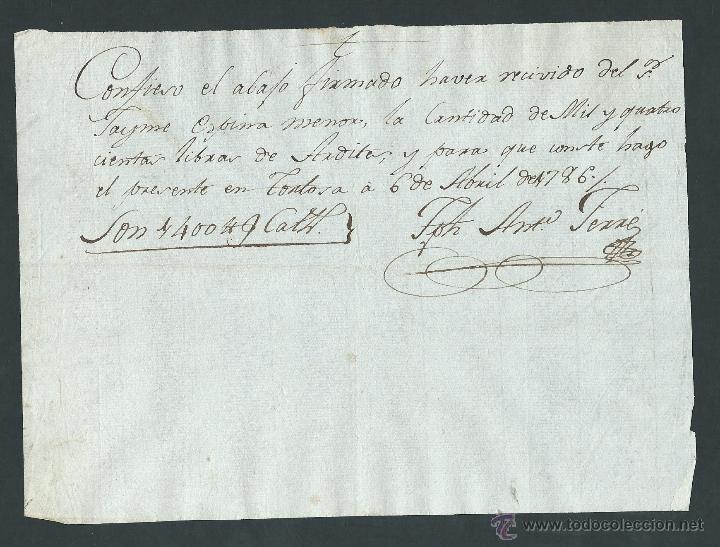 Confieso el abajo firmado haver recivido del Sr.
Jayme Espina menor, la Cantidad de Mil y quatro
cientas libras de Ardites, y para que conste hago
el presente en Tortosa à 6 de Abril de 1786.
Son 1400 Catt.
Jph Antº Ferré
www.todocoleccion.net